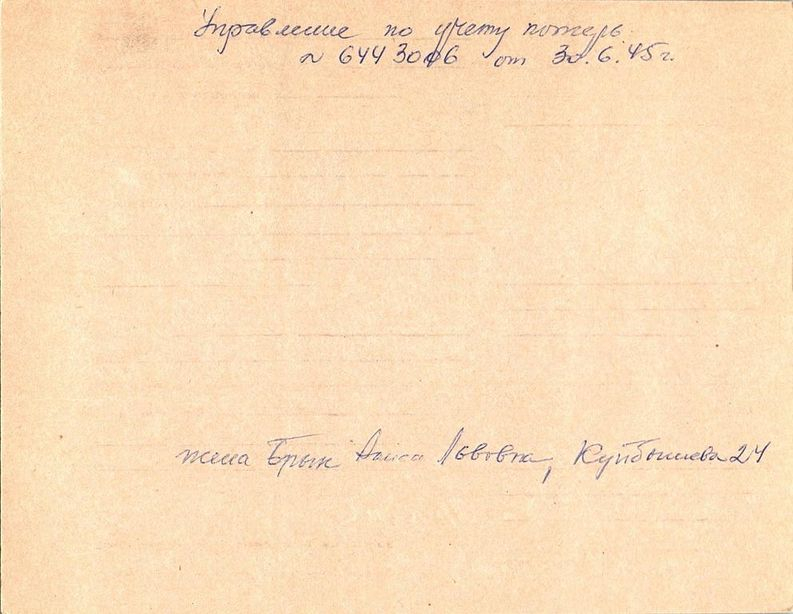 Управление по учету потерь.
N 6443006 от 30.6.45г.
жена Брык Раиса Львовна, Куйбышева 24